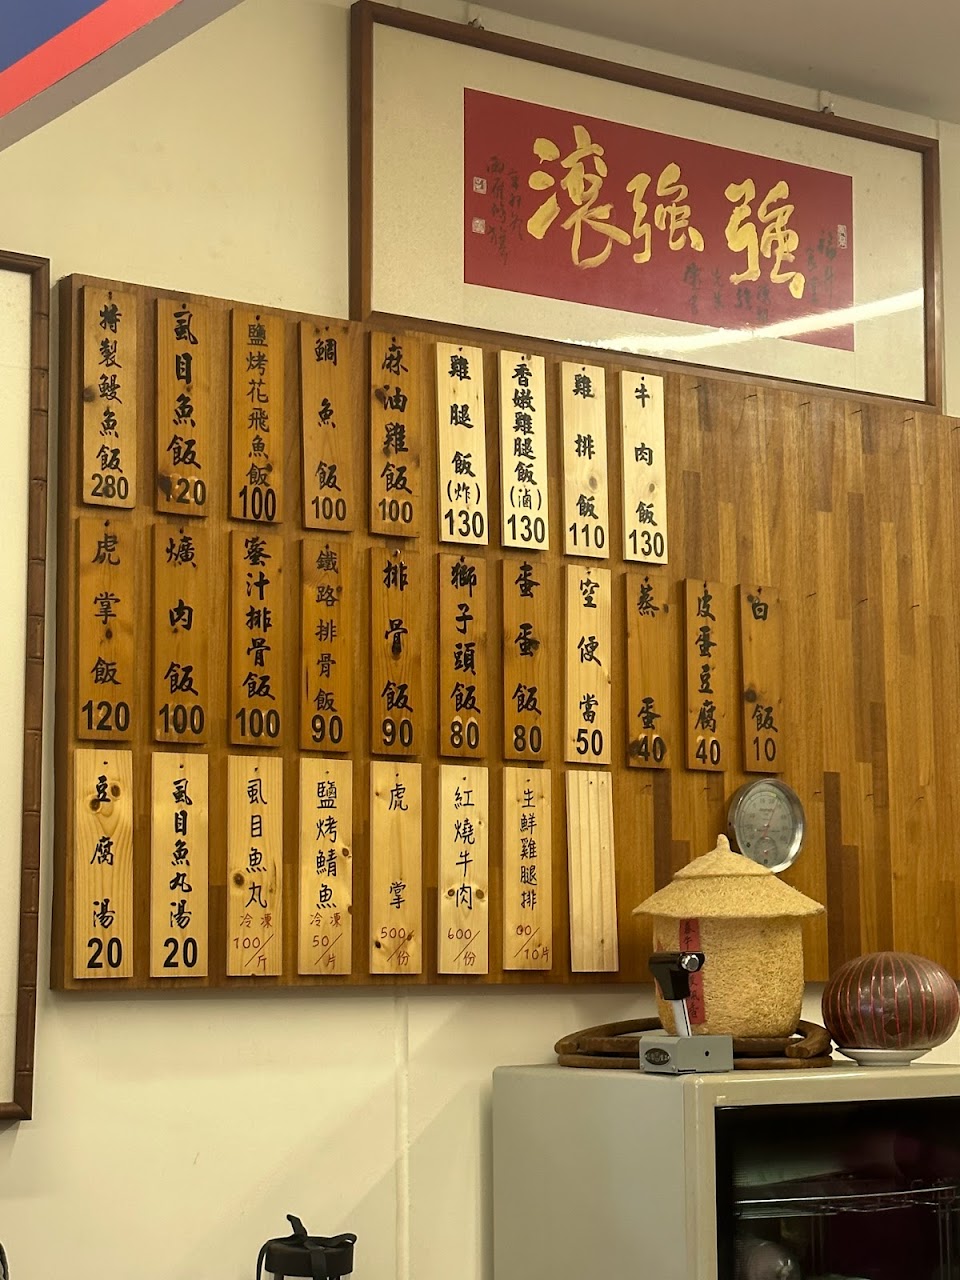 強強滾
特製鰻魚飯 280
虱目魚飯 120
鹽烤花飛魚飯 100
鯛魚飯 100
麻油雞飯 100
雞腿飯(炸) 130
香嫩雞腿飯(滷) 130
雞排飯 110
牛肉飯 130
虎掌飯 120
爌肉飯 100
蜜汁排骨飯 100
鐵路排骨飯 90
排骨飯 90
獅子頭飯 80
蛋蛋飯 80
空便當 50
蒸蛋 40
皮蛋豆腐 40
白飯 10
豆腐湯 20
虱目魚丸湯 20
虱目魚丸 冷凍 100/斤
鹽烤鯖魚 冷凍 50/片
虎掌 500/份
紅燒牛肉 600/份
生鮮雞腿排 /10片